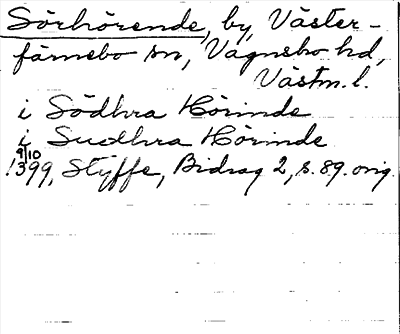 Sörhörende, by, Väster-
färnebo sn, Vagnsbo hd,
Västm. l.
i Södhra Hörinde
i Sudhra Hörinde
9/10
1399, Styffe, Bidrag 2, s. 89. orig.